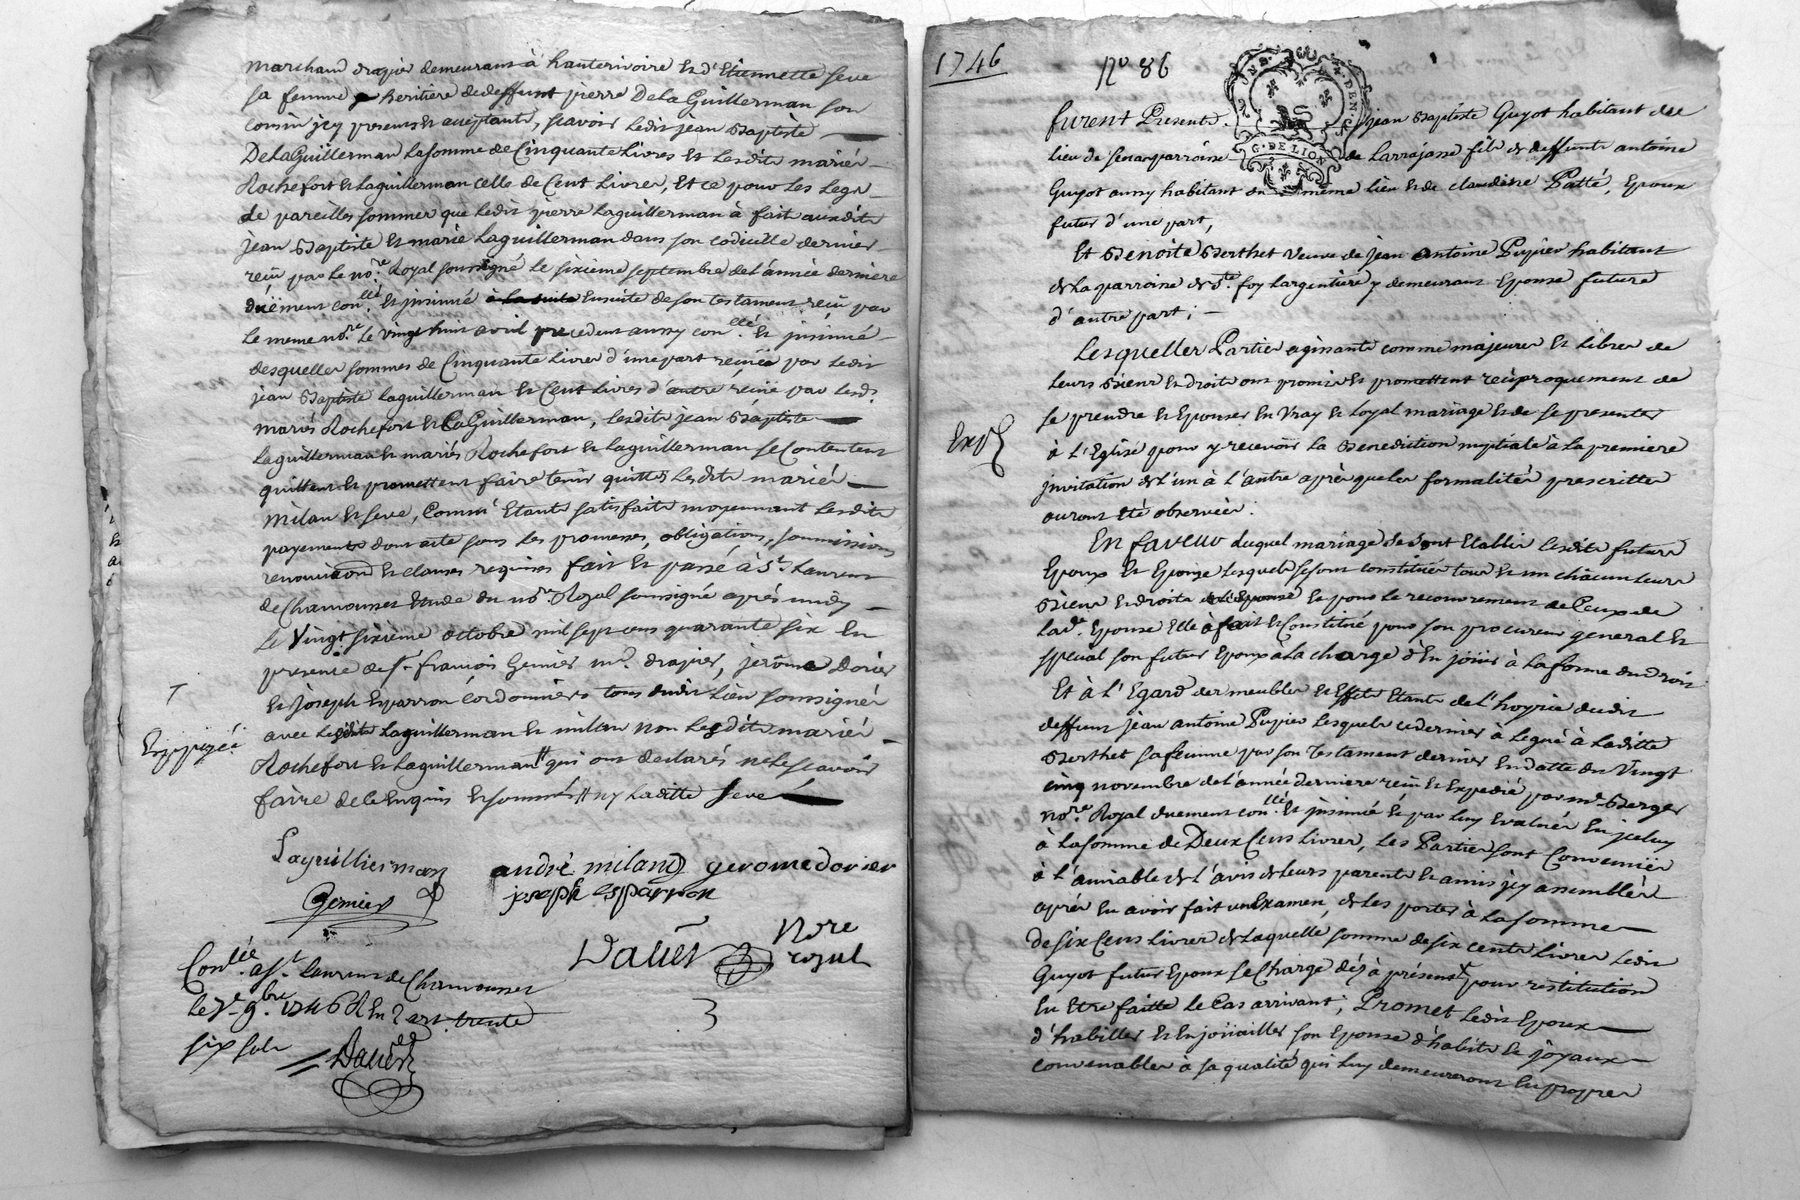 marchand drapier demeurant à hauterivoire et d'Etiennette seve
sa femme heritiere de deffunt pierre De la Guillerman son
cousin jcy presents et acceptants, scavoir ledit jean Baptiste
De la Guillerman la somme de Cinquante Livres et lesdits mariés
Rochefort et laguillerman celle de Cent Livres, Et ce pour les legs
de pareilles sommes que ledit pierre laguillerman à fait auxdits
jean Baptiste et marie laguillerman dans son codicille dernier
reçû par le no.re Royal soussigné le sixieme septembre de l'année derniere
düement con.llé et jnsinué à la suite Ensuite de son testament reçû par
le meme no.re le vingt huit avril precedent aussy con.llé et jnsinué
desquelles sommes de Cinquante Livres d'une part reçüe par ledit
jean Baptiste laguillerman et Cent Livres d'autre reçüe par lesd.
mariés Rochefort et laGuillerman, lesdits jean Baptiste
laguillerman et mariés Rochefort et laguillerman se Contentent
quittent et promettent faire tenir quittes lesdits mariés
milan et seve, Comm' Etants satisfaits moyennant lesdits
payements dont acte sous les promesses, obligations, soumissions
renonciaõns et clauses requises fait et passé à S.t Laurent
de Chamousset Etude du no.re Royal soussigné après midy
le Vingt sixième octobre mil sept cens quarante six En
presence de s.r françois Genier m.d drapier, jerôme Dorier
et joseph Esparron Cordonniers tous dudit lieu soussignés
avec lesdits laguillerman et milan non lesdits mariés
Rochefort et laguillerman # qui ont declarés ne le scavoir
faire de ce Enquis et sommés # ny laditte seve
Expediée
Laguillierman andré miland geromedorier
Genier joseph esparron
Daven No.re royal
Con.lée à S.t Laurent de Chamousset
le 7.e 9.bre 1746 R En l'art. trente
six sols
Daven
3
1746
N.o 86
G. DE LION
furent Presents jean Baptiste Guyot habitant du
lieu de parroisse de Larrajasse fils de deffunt antoine
Guyot aussy habitant du même lieu et de claudine Patté, Epoux
futur d'une part,
Et Benoite Berthet veuve de jean antoine Pupier habitant
de la parroisse de S.te foy Largentière y demeurant Epouse future
d'autre part;
Lesquelles Parties agissants comme majeures et libres de
leurs Biens et droits ont promis et promettent reciproquement de
se prendre et Epouser En Vray et Loyal mariage et de se presenter
à L'Eglise pour y recevoir la Benediction nuptiale à la premiere
jnvitation de l'un à L'autre après que les formalités prescrittes
auront été observées.
Exp.
En faveur duquel mariage se sont Etablis lesdits futurs
Epoux et Epouse Lesquels se sont constitués tous et un chacun leurs
Biens et droits et pour le recouvrement de Ceux de
lad.e Epouse Elle à fait et Constitué pour son procureur general et
special son futur Epoux à La charge d'En joüir à La forme du droit
Et à L'Egard des meubles et Effets Etants de l'hoyrie dudit
deffunt jean antoine Pupier lesquels ce dernier à legué à laditte
Berthet sa femme par son testament dernier En datte du Vingt
cinq novembre de l'année derniere reçû et Expedié par m.e Berger
no.re Royal duement con.llé et jnsinué et par luy Evalués En jceluy
à la somme de Deux Cens livres, les Parties sont Convenües
à l'amiable de l'avis de leurs parents et amis jcy assemblés
après En avoir fait un Examen, de les porter à La somme
de six Cens livres de laquelle somme de six cents livres ledit
Guyot futur Epoux se Charge dès à present pour restitution
En Etre faitte le Cas arrivant, Promet ledit Epoux
d'habiller et Enjoüailler son Epouse d'habits et joyaux
convenables à sa qualité qui luy demeureront En propres